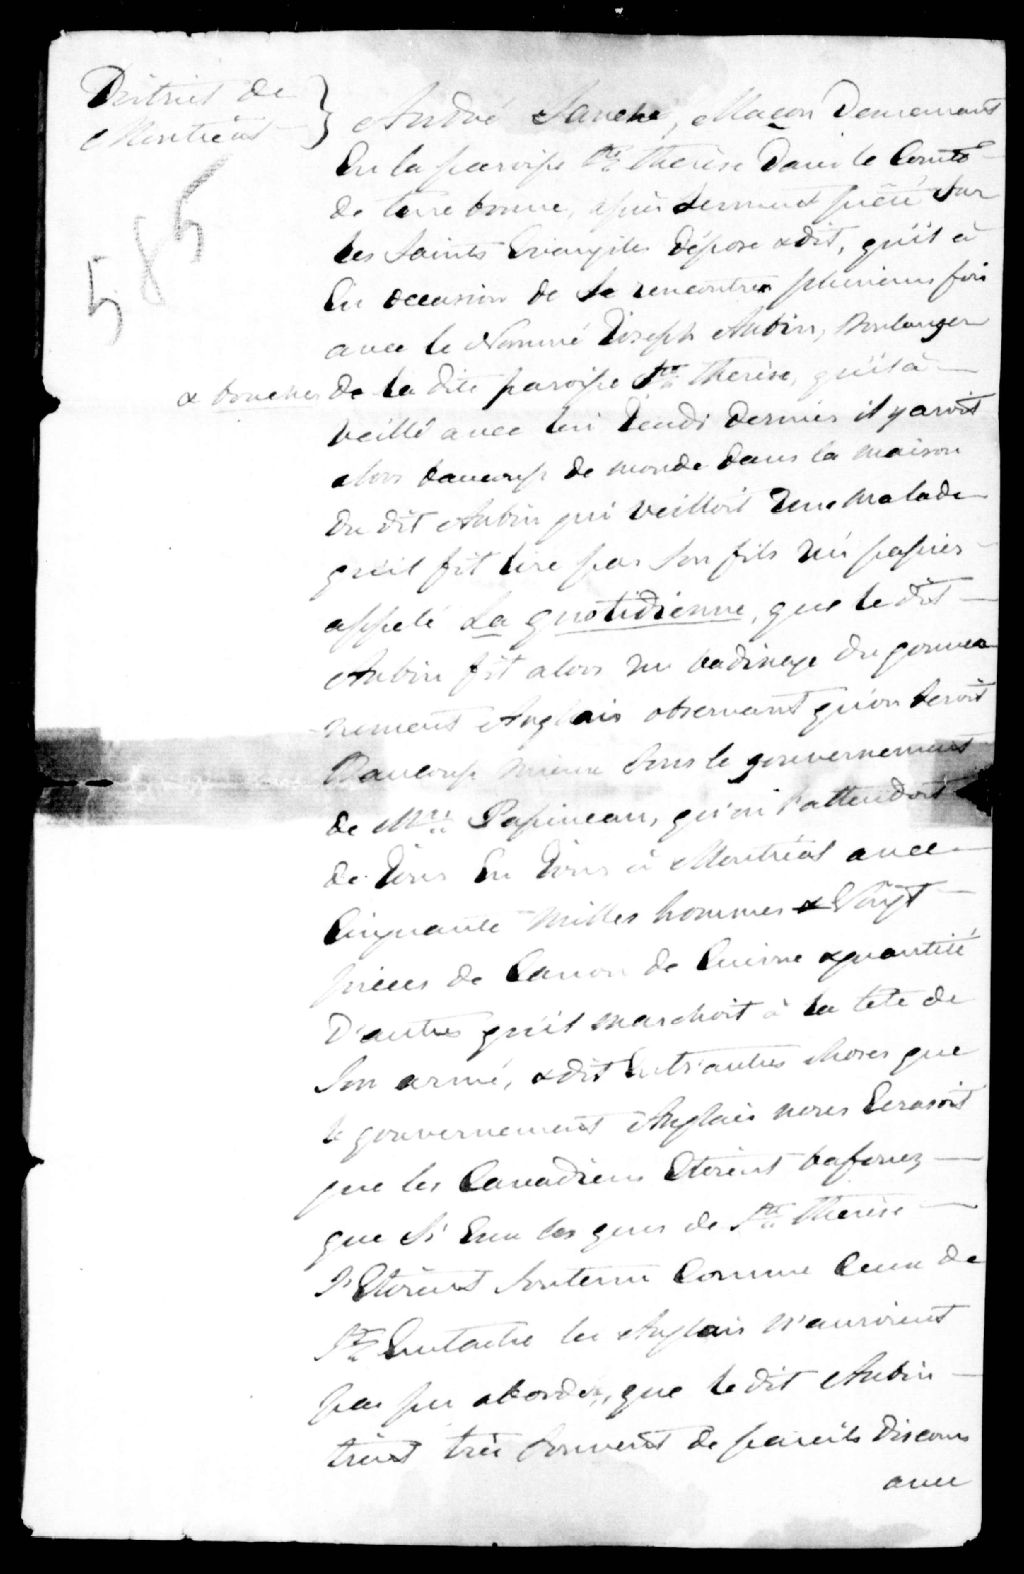 District de
Montréal }
585
André Sanche, Maçon Demeurant
En la paroisse Ste. Therèse Dans le Comté
de terrebonne, après serment prêté sur
les Saints Evangiles dépose & dit, qu'il à
Eu occasion de se rencontrer plusieurs fois
avec le Nommé Joseph Aubin, Boulanger
& boucher de la dite paroisse Ste. Therèse, qu'il à
veillé avec lui Jeudi dernier il y avoit
alors baucoup de monde dans la maison
du dit Aubin qui veilloit une malade
qu'il fit lire par son fils un papier
appelé La quotidienne, que le dit
Aubin fit alors un badinage du gouver
nement Anglais observant qu'on seroit
Baucoup mieux sous le gouvernement
de Mr. Papineau, qu'on l'attendoit
de Jour En Jour à Montréal avec
Cinquante milles hommes & Vingt
pièces de Canon de Cuivre & quantité
D'autres qu'il marchoit à la tête de
son armé, & dit Entr'autres choses que
le gouvernement Anglais nous Ecrasoit
que les Canadiens Etoient bafouez
que si Eux les gens de Ste. Therèse
s'Etoient soutenu Comme Ceux de
St. Eustache les Anglais n'auroient
pas pu aborder, que le dit Aubin
tient très souvent de pareils discours
avec